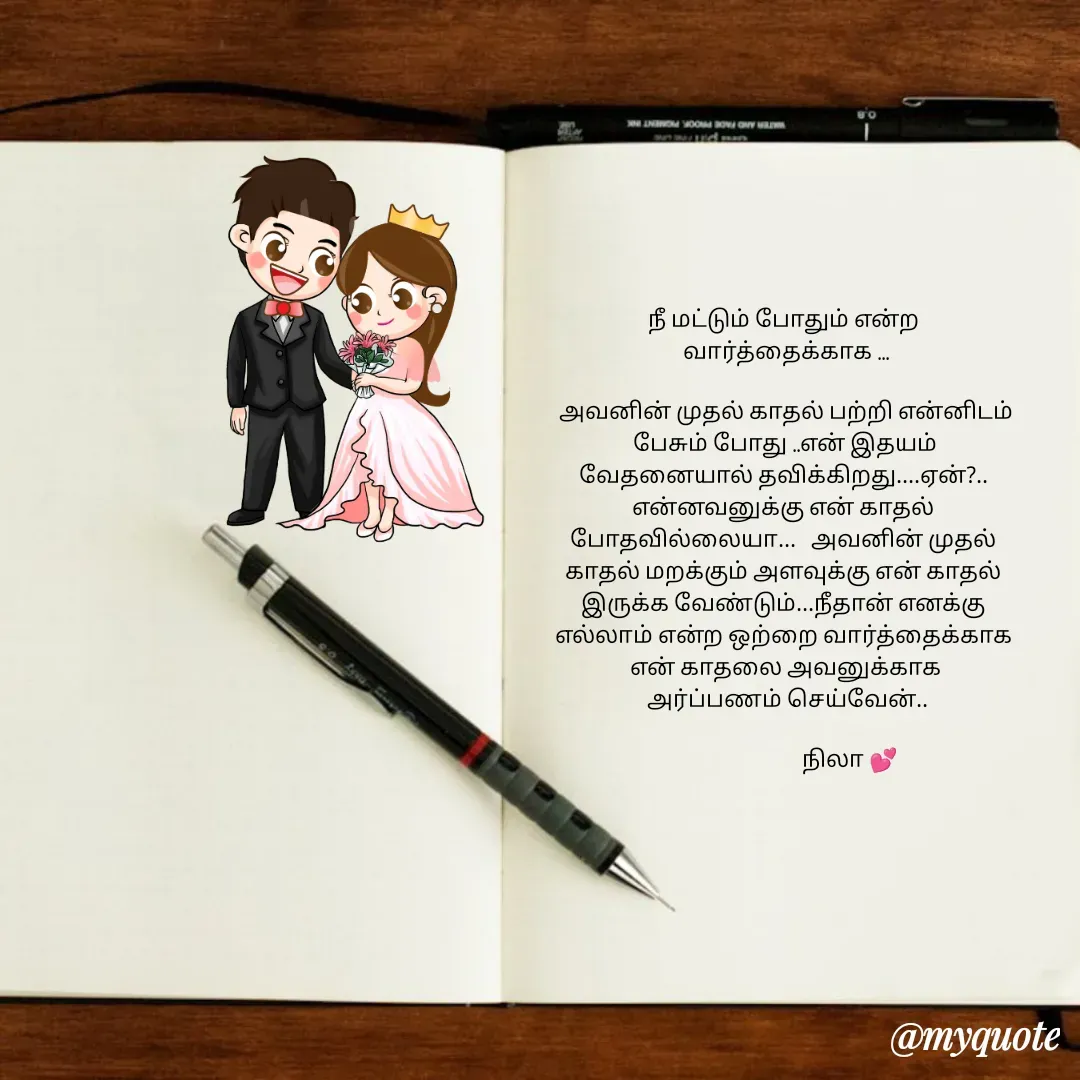 WATER AND FADE PROOF, PIGMENT INK
0.8
நீ மட்டும் போதும் என்ற
வார்த்தைக்காக ...
அவனின் முதல் காதல் பற்றி என்னிடம்
பேசும் போது ..என் இதயம்
வேதனையால் தவிக்கிறது....ஏன்?..
என்னவனுக்கு என் காதல்
போதவில்லையா... அவனின் முதல்
காதல் மறக்கும் அளவுக்கு என் காதல்
இருக்க வேண்டும்...நீதான் எனக்கு
எல்லாம் என்ற ஒற்றை வார்த்தைக்காக
என் காதலை அவனுக்காக
அர்ப்பணம் செய்வேன்..
நிலா 💕
@myquote